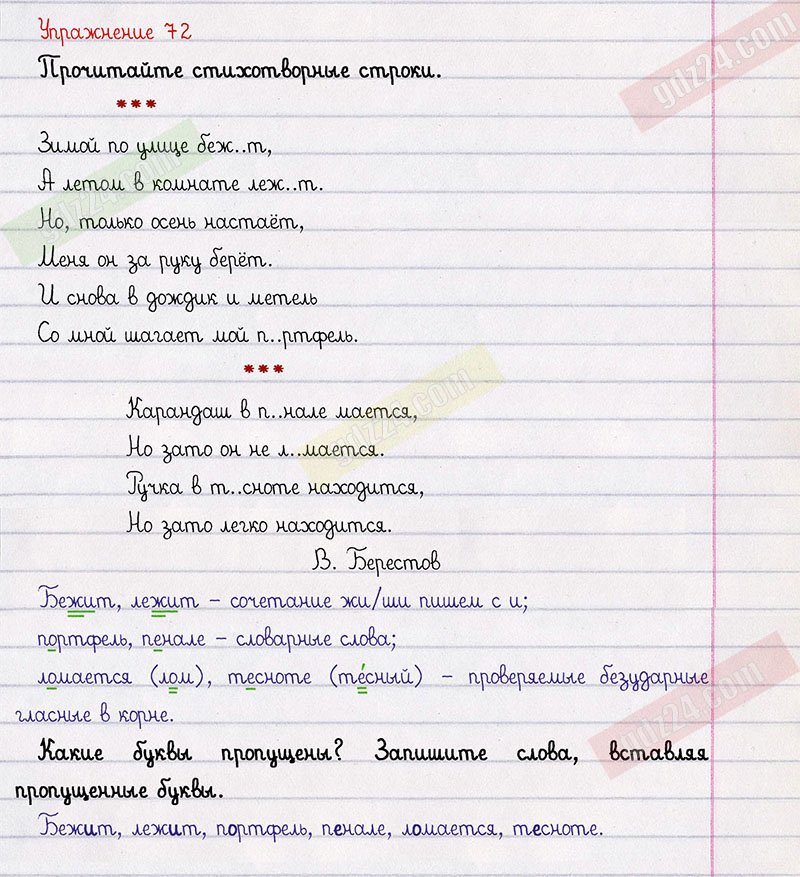 Упражнение 72
Прочитайте стихотворные строки.
***
Зимой по улице беж..т,
А летом в комнате леж..т.
Но, только осень настаёт,
Меня он за руку берёт.
И снова в дождик и метель
Со мной шагает мой п..ртфель.
***
Карандаш в п..нале мается,
Но зато он не л..мается.
Ручка в т..сноте находится,
Но зато легко находится.
В. Берестов
Бежит, лежит – сочетание жи/ши пишем с и;
портфель, пенале – словарные слова;
ломается (лом), тесноте (те́сный) – проверяемые безударные
гласные в корне.
Какие буквы пропущены? Запишите слова, вставляя
пропущенные буквы.
Бежит, лежит, портфель, пенале, ломается, тесноте.
gdz24.com
gdz24.com
gdz24.com
gdz24.com